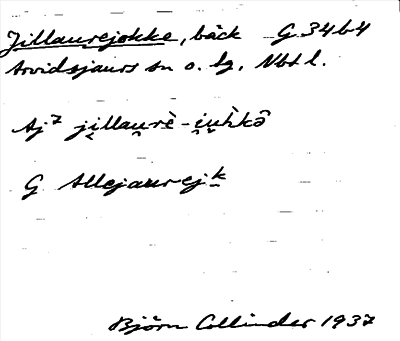 Jillaurejokke, bäck G 34b4
Arvidsjaurs sn o. lg, Nbtl.
Aj⁷ ji̭llau̯rè-i̯u̯h̀kô
G Allejaurejk
Björn Collinder 1937